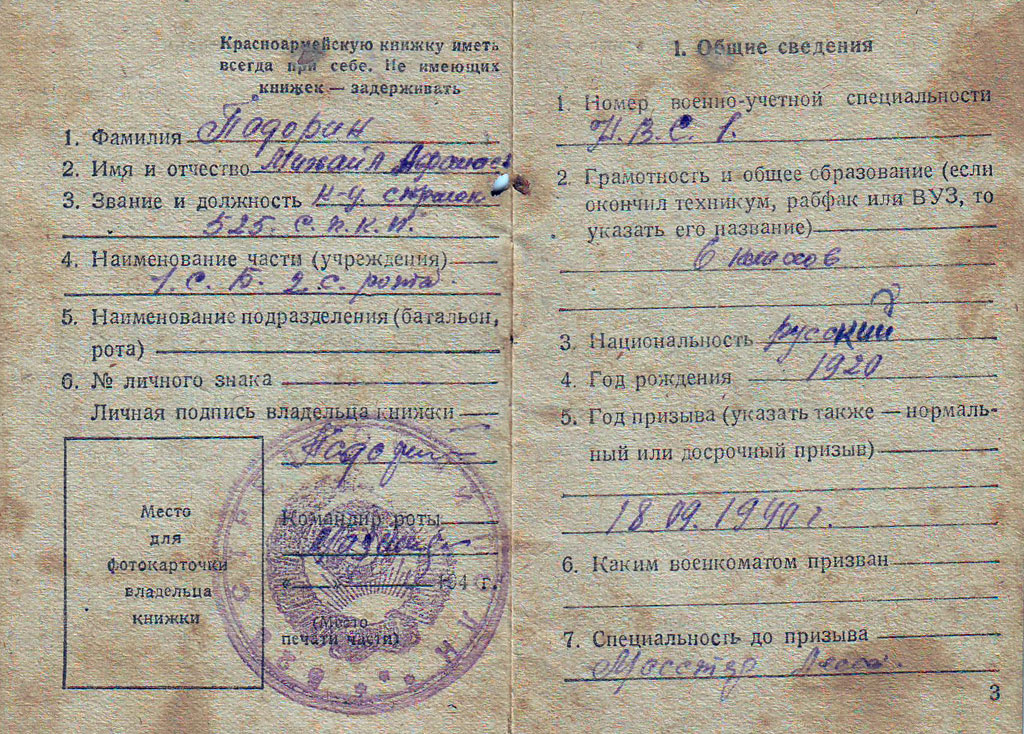 Красноармейскую книжку иметь
всегда при себе. Не имеющих
книжек — задерживать
1. Фамилия Подорин
2. Имя и отчество Михаил
3. Звание и должность стрелок
525. с. п. к. п.
4. Наименование части (учреждения)
1. с. Б. 2 с. рота.
5. Наименование подразделения (батальон,
рота)
6. № личного знака
Личная подпись владельца книжки
Место
для
фотокарточки
владельца
книжки
Командир роты
« 194 г.
(Место
печати части)
1. Общие сведения
1. Номер военно-учетной специальности
2. Грамотность и общее образование (если
окончил техникум, рабфак или ВУЗ, то
указать его название)
6 классов
3. Национальность русский
4. Год рождения 1920
5. Год призыва (указать также — нормаль-
ный или досрочный призыв)
18 09. 1940 г.
6. Каким военкоматом призван
7. Специальность до призыва
3